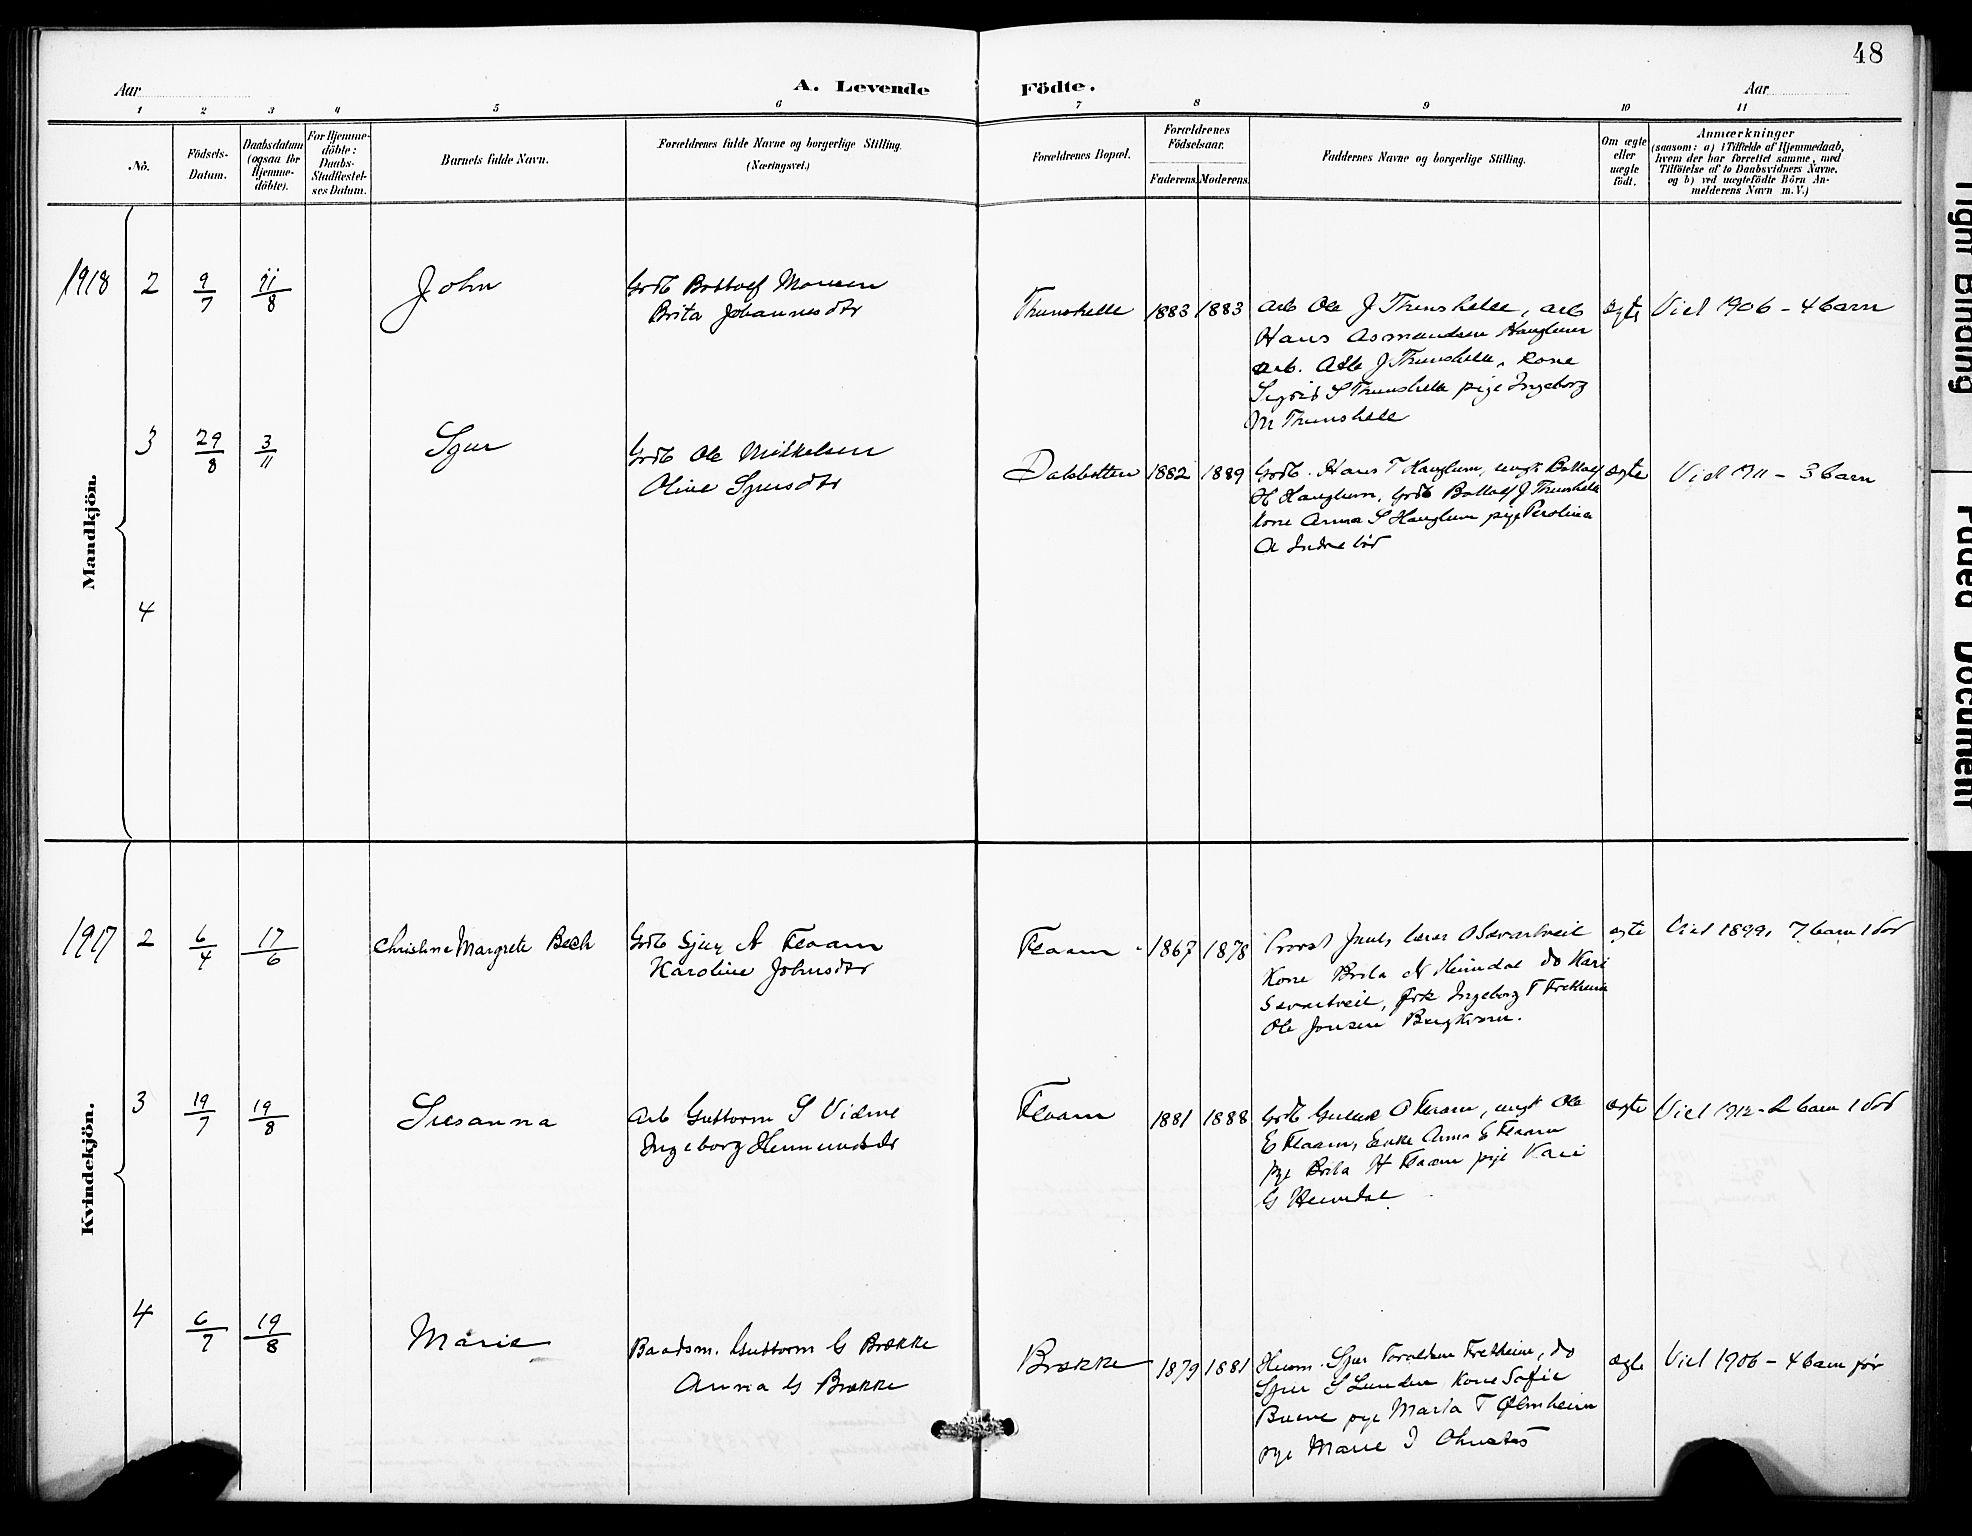 48
Aar
A. Levende Födte.
Aar
1 2 3 4 5 6 7 8 9 10 11
No.
Födsels-Datum.
Daabsdatum (ogsaa for Hjemme-döbte).
For Hjemme-döbte: Daabs-Stadfæstel-ses Datum.
Barnets fulde Navn.
Forældrenes fulde Navne og borgerlige Stilling.
(Næringsvei.)
Forældrenes Bopæl.
Forældrenes Födselsaar.
Faderens. Moderens.
Faddernes Navne og borgerlige Stilling.
Om ægte eller uægte födt.
Anmærkninger
(saasom: a) i Tilfælde af Hjemmedaab,
hvem der har forrettet samme, med
Tilföielse af to Daabsvidners Navne,
og b) ved uægtefödte Börn An-
melderens Navn m. V.)
Mandkjön.
1918 2 9/7 11/8 John
Grdb Bottolf Monsen
Brita Johannesdtr
Thunshelle 1883 1883
arb Ole J Thunshelle, arb
Hans Asmundsen Hauglum
arb. Atle J Thunshelle, kone
Sigrid S Thunshelle pige Ingeborg
M Thunshelle
ægte Viet 1906 - 4 barn
3 29/8 3/11 Sjur
Grdb Ole Mikkelsen
Oline Sjursdtr
Dalsbotten 1882 1889
Grdb. Hans T Hauglum, ungk Bottolf
H Hauglum, Grdb Bottolf J Thunshelle
kone Anna S Hauglum pige Perolina
A Indrebø
ægte Viet 1911 - 3 barn
4
Kvindekjön.
1917 2 6/4 17/6 Christine Margrete Bech
Grdb Sjur N Flaam
Karoline Johnsdtr
Flaam 1867 1878
Provst Juul, lærer O Savartveit
Kone Brita N Heimdal do Kari
Savartveit, frk Ingeborg T Fretheim
Ole Jonsen Bergkvam.
ægte Viet 1899, 7 barn 1 død
3 19/7 19/8 Susanna
Arb Guttorm S Vidme
Ingeborg Hermundsdtr
Flaam 1881 1888
Grdb Gullik O Flaam, ungk Ole
E Flaam, Enke Anna E Flaam
pige Brita H Flaam pige Kari
G Heimdal
ægte Viet 1912 - 2 barn 1 død
4 6/7 19/8 Marie
Baadsm. Guttorm G Brekke
Anna G Brekke
Brekke 1879 1881
Husm. Sjur Toraldsen Fretheim, do
Sjur S Lunden Kone Sofie
pige Marta T Ølmheim
pige Marie J
ægte Viet 1906 - 4 barn før
Tight Binding
Faded Document